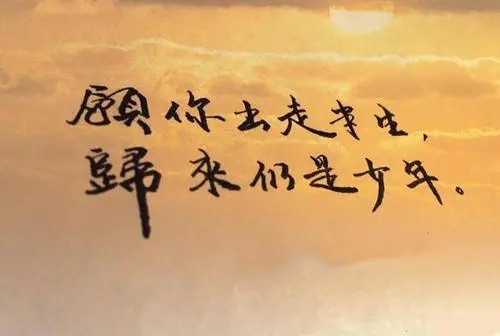 願你出走半生,
歸來仍是少年。